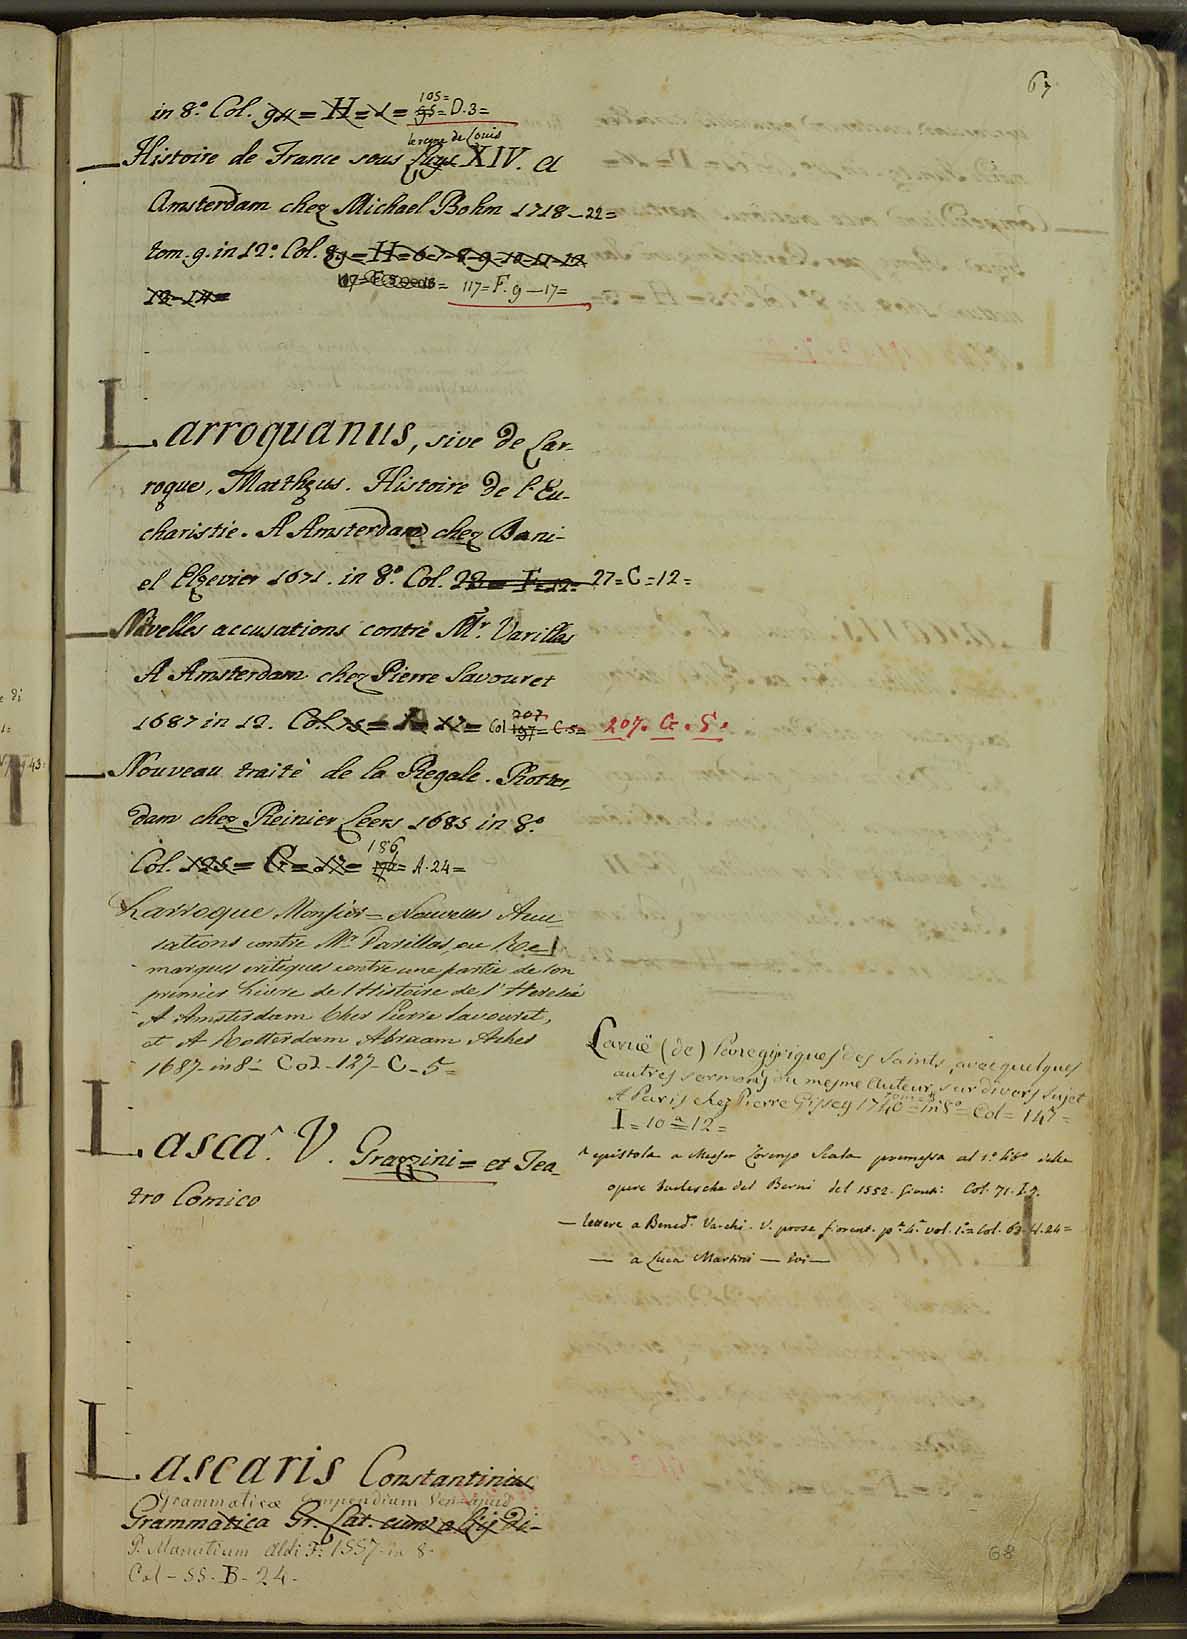 67
in 8.º Col. 94 = H = 1 = 95 = D. 3 =
105 =
le regne de Louis
Histoire de France sous Luys XIV. A
Amsterdam chez Michael Bohm 1718 - 22 =
tom. 9. in 12.º Col. 89 = H = 6-7-8-9-10-11-12
13-14 = 117 = F. 9 — 17 =
Larroquanus, sive de Lar-
roque, Matthęus. Histoire de l'Eu-
charistie. A Amsterdam chez Dani-
el Elzevier 1671. in 8.º Col. 22 = F. 12 = 27 = C = 12 =
Nouvelles accusations contre Mr. Varillas
A Amsterdam chez Pierre Savouret
1687 in 12. Col. Col 197 = C. 5 = 207. G. 5.
207
Nouveau traitè de la Regale. Rotter-
dam chez Reinier Leers 1685 in 8.º
186
Col. 125 = G = 17 = A. 24 =
Larroque Monsier = Nouvelles Accu-
sations contre Mr Varillas, ou Re-
marques critiques contre une partie de son
premier Livre de l'Histoire de l'Heresie
A Amsterdam Ches Pierre Savouret,
et A Rotterdam Abraam Aches
1687 - in 8 - Col - 127 - C - 5 =
Larue (de) Panegijriques des Saints, avec quelques
autres sermons du mesme Auteur, sur divers sujet
A Paris chez Pierre Gissey 1740 = in 8º = Col = 147 =
I = 10 a 12 =
Lasca^. V. Grazzini = et Tea-
tro Comico
^ epistola a Messer Lorenzo Scala premessa al 1.º libº delle
opere burlesche del Berni del 1552. Giunti: Col. 71. I. 7.
— lettere a Bened.º Varchi. V. prose fiorent. pª. 4.ª vol. 1.º = Col. 63. H. 24 =
— a Luca Martini — ivi —
Lascaris Constantinus
Grammaticæ Compendium Ven. apud
Grammatica Gr. Lat. cum alijs Di-
P. Manutium Aldi F. 1557 - in 8 -
Col - 55 - B - 24 -
68